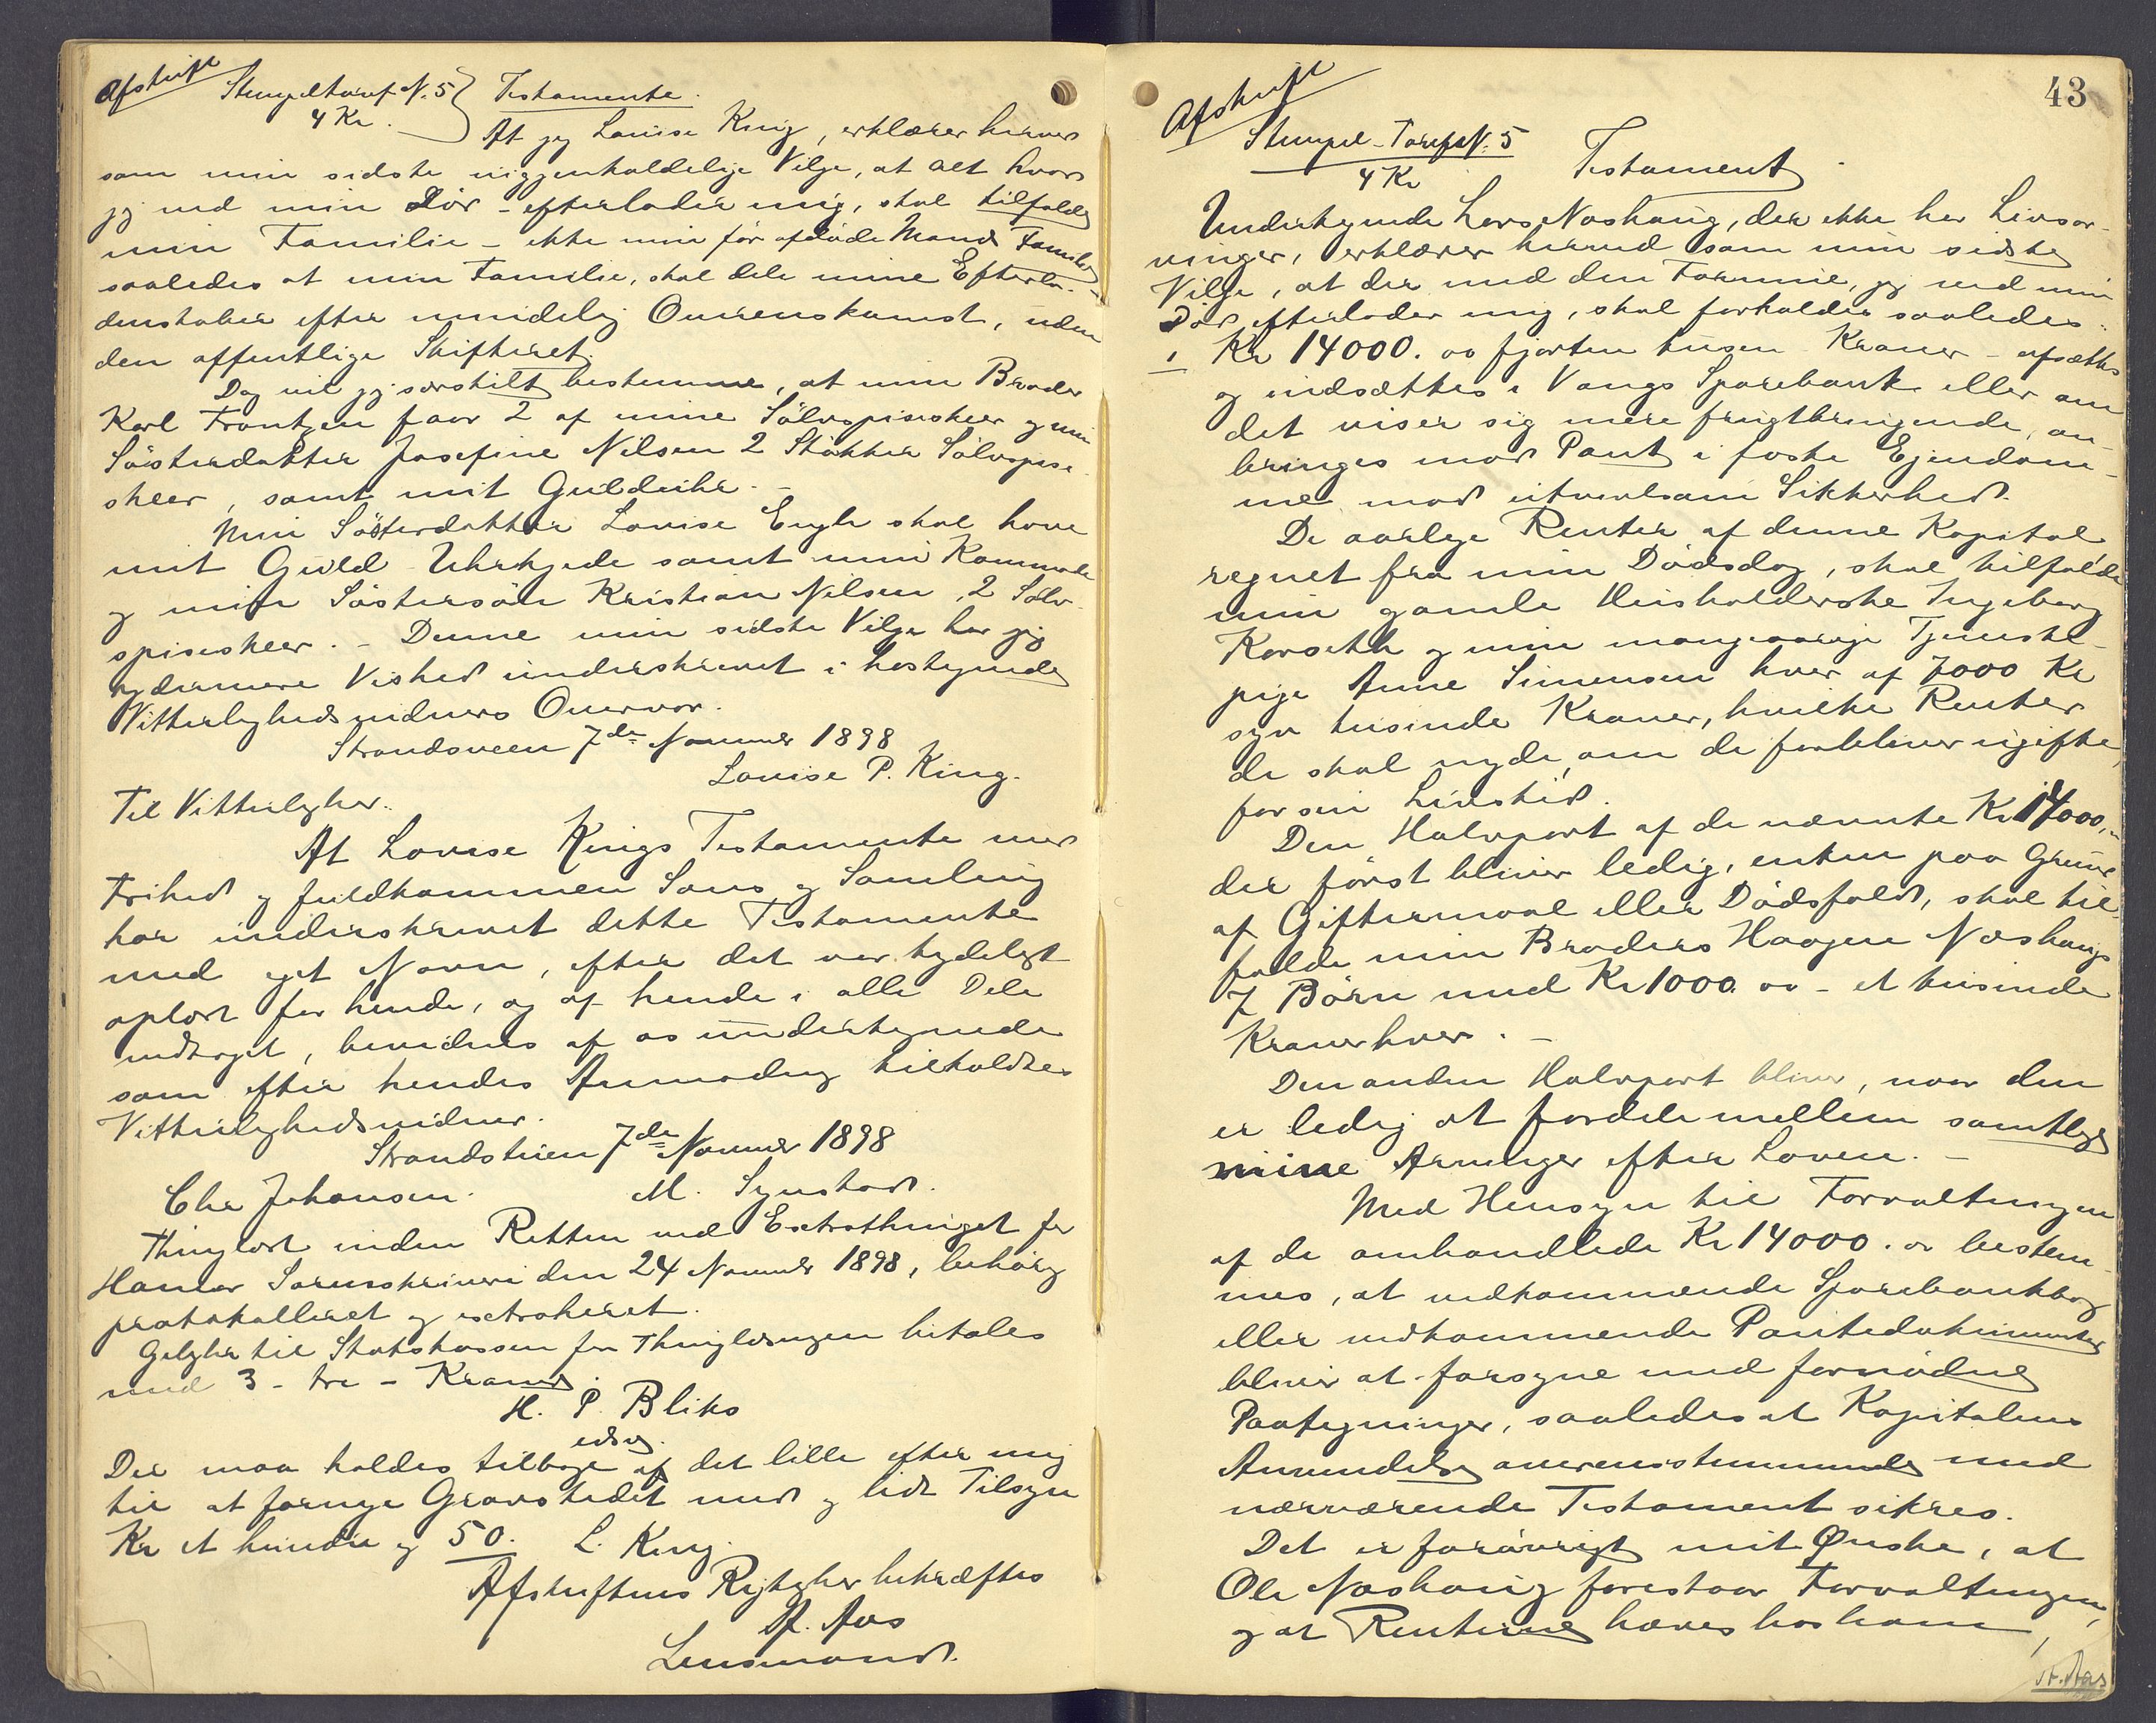 Afskrift
Stempeltarif N. 5
4 Kr.
Testamente.
At jeg Louise King, erklærer herved
som min sidste uiggenkaldelige Vilge, at alt hvad
jeg ved min Död - efterlader mig, skal tilfalde
min Familie - ikke min för afdöde Mands Familie
saaledes at min Familie, skal dele mine Efterla-
denskaber efter mindelig Overenskomst, uden
den offentlige Skifteret.
Dog vil jeg særskilt bestemme, at min Broder
Karl Frantzen faar 2 af mine Sölvspiseskeer og min
Sösterdatter Josefine Nilsen 2 Stökker Sölvspise-
skeer, samt mit Gulduhr. -
Min Sösterdatter Lovise Engh skal have
mit Guld-Uhrkjede samt min Kommode
og min Söstersön Kristian Nilsen, 2 Sölv-
spiseskeer. - Denne min sidste Vilge har jeg
ydermere Vished underskrevet i hostegnede
Vitterlighedsvidners Overvær.
Strandsveen 7de November 1898
Louise P. King.
Til Vitterlighed.
At Lovise Kings Testamente med
Frihed og fuldkommen Sans og Samling
har underskrevet dette Testamente
med eget Navn, efter det var tydeligt
oplæst for hende, og af hende i alle Dele
vedtaget, bevidnes af os undertegnede
som efter hendes Anmodning tilkaldtes
Vitterlighedsvidner.
7de November 1898
Chr Johansen. M. Synstad.
Thinglæst inden Retten ved Extrathinget for
Hamar Sorenskriveri den 24 November 1898, behörig
protokolleret og extraheret.
Gebyhr til Statskassen for Thinglæsningen betales
med 3 - tre - Kroner.
H. P. Bliks
edsv.
Der maa holdes tilbage af det lille efter mig
til at fornye Gravstedet med og lidt Tilsyn
Kr et hundre og 50. L. King.
Afskriftens Rigtighed bekræftes
A. Aas
Lensmand.
43
Afskrift
Stempel-Tarif N. 5
4 Kr
Testament
Undertegnede Lars Næshaug, der ikke har Livsar-
vinger, erklærer herved som min sidste
Vilge, at der med den Formue, jeg ved min
Död efterlader mig, skal forholdes saaledes.
1 Kr 14000. oo fjorten tusen Kroner - afsættes
og indsættes i Vangs Sparebank eller om
det viser sig mere frugtbringende, an-
bringes mod Pant i faste Ejendom-
me mod utvivlsom Sikkerhed.
De aarlige Renter af denne Kapital
regnet fra min Dödsdag, skal tilfalde
min gamle Husholderske Ingeborg
Korseth og min mangeaarige Tjeneste-
pige Anne Simensen hver af 7000 Kr
syv tusinde Kroner, hvilke Renter
de skal nyde, om de forbliver ugifte,
for sin Livstid.
Den Halvpart af de nævnte Kr 14000,
der först bliver ledig, enten paa Grund
af Giftermaal eller Dödsfald, skal til-
falde min Broders Haagen Næshaugs
7 Börn med Kr 1000 oo - et tusinde
Kroner hver. -
Den anden Halvpart bliver, naar den
er ledig at fordele mellem samtlige
mine Arvinger efter Loven. -
Med Hensyn til Forvaltningen
af de omhandlede Kr 14000. oo bestem-
mes, at vedkommende Sparebankbog
eller vedkommende Pantedokumenter
bliver at forsyne med fornödne
Paategninger, saaledes at Kapitalens
Anvendelse overensstemmende med
nærværende Testament sikres.
Det er forövrigt mit Ønske, at
Ole Næshaug forestaar Forvaltningen,
og at Renterne hæves hos ham,
A. Aas